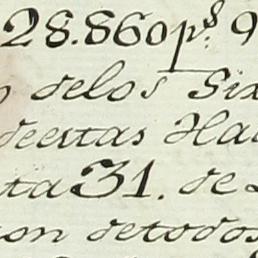 28.860 p.s 9
delos Six
deestas Ha
ta 31. de
on detodos